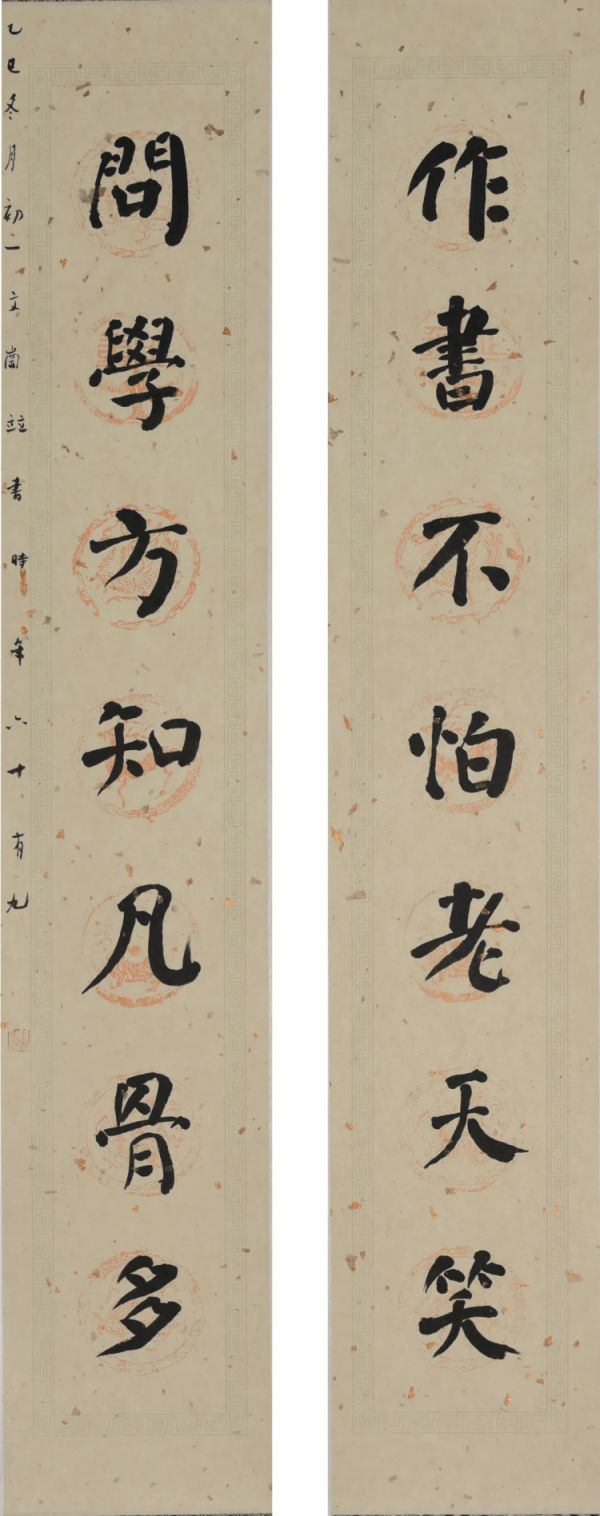 作書不怕老天笑
問學方知凡骨多
乙巳冬月初一文崗竝書時年六十有九